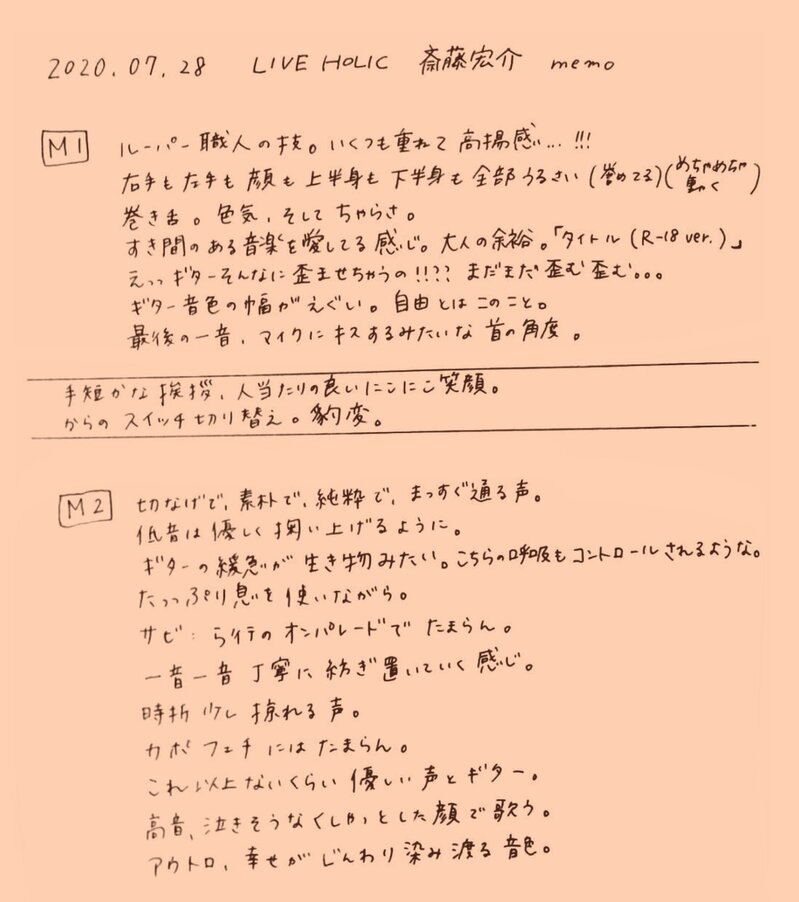 2020.07.28 LIVE HOLIC 斎藤宏介 memo
M1 ルーパー職人の技。いくつも重ねて高揚感…!!!
右手も左手も顔も上半身も下半身も全部うるさい(誉めてる)(めちゃめちゃ動く)
巻き舌。色気、そしてちゃらさ。
すき間のある音楽を愛してる感じ。大人の余裕。「タイトル(R-18 ver.)」
えっっギターそんなに歪ませちゃうの!!??まだまだ歪む歪む。。。
ギター音色の幅がえぐい。自由とはこのこと。
最後の一音、マイクにキスするみたいな首の角度。
手短かな挨拶、人当たりの良いにこにこ笑顔。
からのスイッチ切り替え。豹変。
M2 切なげで、素朴で、純粋で、まっすぐ通る声。
低音は優しく掬い上げるように。
ギターの緩急が生き物みたい。こちらの呼吸もコントロールされるような。
たっっぷり息を使いながら。
サビ:ら行のオンパレードでたまらん。
一音一音丁寧に紡ぎ置いていく感じ。
時折少し掠れる声。
カポフェチにはたまらん。
これ以上ないくらい優しい声とギター。
高音、泣きそうなくしゃっとした顔で歌う。
アウトロ、幸せがじんわり染み渡る音色。